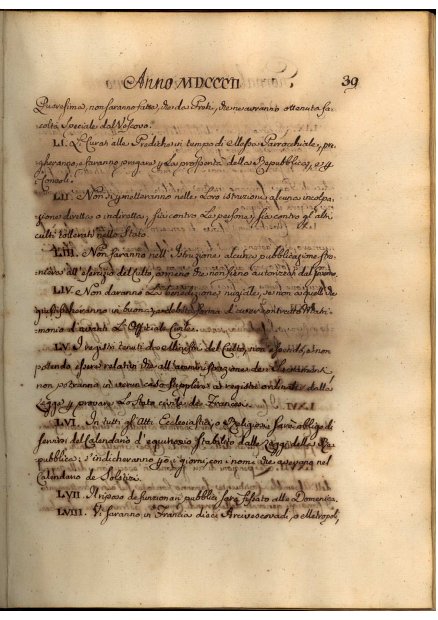 Anno MDCCCII 39
Quaresima, non saranno fatte, che da Preti, che ne avranno ottenuta fa:
coltà speciale dal Vescovo.
LI. I Curati alle Prediche in tempo di Messa Parrocchiale, pre,
gheranno, e faranno pregare per la prosperità della Repubblica, e pei
Consoli.
LII. Non si permetteranno nelle loro istruzioni alcuna incolpa,
zione diretta o indiretta, sia contro la persone, sia contro gl'altri
culti tollerati nello Stato.
LIII. Non faranno nell'Istruzione alcuna pubblicazione stra,
niera all'esercizio del Culto, ammeno che non sieno autorizzati dal Governo.
LIV. Non daranno la benedizione nuziale, se non a quelli che
giustificheranno in buona, e debita forma d'aver contratto Matri-
monio d'avanti l'Officiale Civile.
LV. I registri tenuti da Ministri del Culto, non essendo, e non
potendo essere relativi che all'amministrazione de Sacramenti
non potranno in verun caso supplire ai registri ordinati dalla
Legge per provare lo stato civile de Francesi.
LVI. In tutti gl'Atti Ecclesiastici, e Religiosi sarà obbligo di
servirsi del Calendario d'equinozio stabilito dalle Leggi della Re,
pubblica; s'indicheranno poi i giorni, con i nomi che avevano nel
Calendario de Solstizi.
LVII. Il riposo de funzionari pubblici sarà fissato alla Domenica.
LVIII. Vi saranno in Francia dieci Arcivescovadi, o Metropoli,